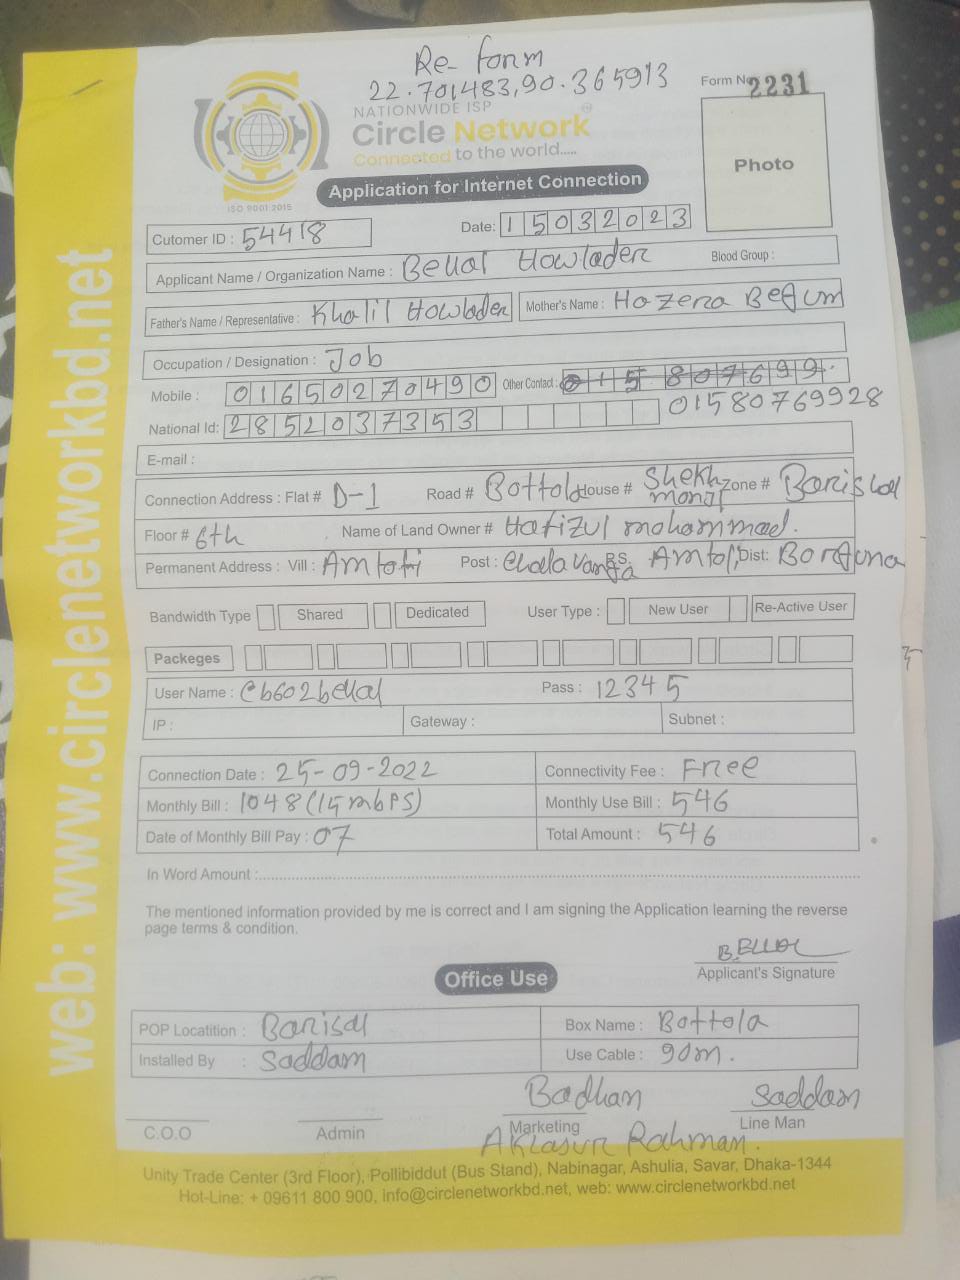 Re- form
22.701483,90.365913
Form No 2231
NATIONWIDE ISP
Circle Network
Connected to the world.....
ISO 9001:2015
Photo
Application for Internet Connection
Cutomer ID : 54418
Date: 15032023
Applicant Name / Organization Name : Bellal Howlader
Blood Group :
Father's Name / Representative : Khalil Howlader
Mother's Name : Hazera Begum
Occupation / Designation : Job
Mobile : 01650270490
Other Contact : 015 807699
National Id: 2852037353
01580769928
E-mail :
Connection Address : Flat # D-1 Road # Bottola House # Shekh monjil Zone # Barishal
Floor # 6th Name of Land Owner # Hafizul mohammad.
Permanent Address : Vill : Post : P.S. Dist: Borguna
Bandwidth Type Shared Dedicated User Type : New User Re-Active User
Packeges
User Name : cb602bellal Pass : 12345
IP : Gateway : Subnet :
Connection Date : 25-09-2022 Connectivity Fee : Free
Monthly Bill : 1048 (15mbPS) Monthly Use Bill : 546
Date of Monthly Bill Pay : 07 Total Amount : 546
In Word Amount :
The mentioned information provided by me is correct and I am signing the Application learning the reverse
page terms & condition.
BELLAL
Applicant's Signature
Office Use
POP Locatition : Barisal Box Name : Bottola
Installed By : Saddam Use Cable : 90m.
Badhan Saddam
C.O.O Admin Marketing Line Man
Aklasur Rahman.
Unity Trade Center (3rd Floor), Pollibiddut (Bus Stand), Nabinagar, Ashulia, Savar, Dhaka-1344
Hot-Line: + 09611 800 900, info@circlenetworkbd.net, web: www.circlenetworkbd.net
web: www.circlenetworkbd.net